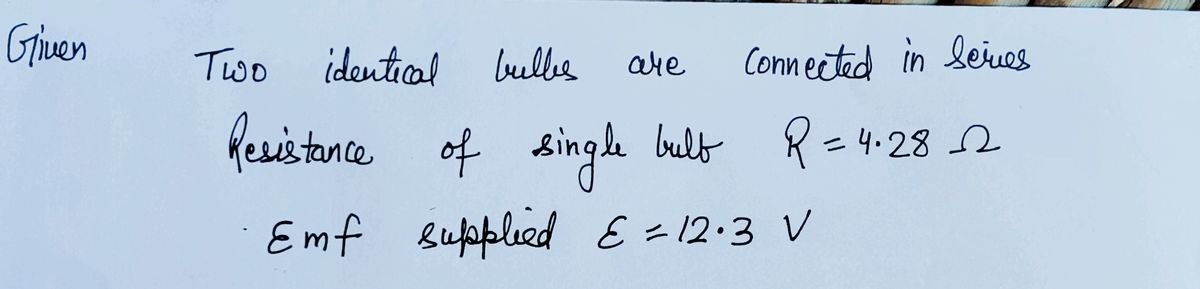 Given
Two identical bulbs are connected in Series
Resistance of single bulb R = 4.28 Ω
Emf supplied ε = 12.3 V